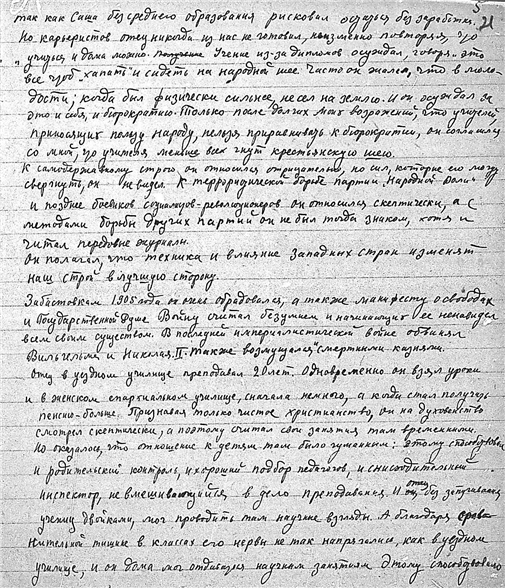 5
21
так как Саша без среднего образования рисковал остаться без заработка.
Но карьеристов отец никогда из нас не готовил, неизменно повторяя, что
учиться и дома можно. Учение из-за дипломов осуждал, говоря "это
все чтоб хапать и сидеть на народной шее". Часто он жалел, что в моло-
дости, когда был физически сильнее, не сел на землю. И он осуждал за
это и себя, и бюрократию. Только после долгих моих возражений, что учителей,
приносящих пользу народу, нельзя приравнивать к бюрократии, он согласился
со мной, что учителя меньше всех гнут крестьянскую шею.
К самодержавному строю он относился отрицательно, но сил, которые его могут
свергнуть, он не видел. К террористической борьбе партии "Народной Воли"
и позднее боевиков социалистов-революционеров он относился скептически, а с
методами борьбы других партий он не был тогда знаком, хотя и
читал передовые журналы.
Он полагал, что техника и влияние Западных стран изменят
наш строй в лучшую сторону.
Забастовкам 1905 года он обрадовался, а также манифесту о свободах
и Государственной Думе. Войну считал безумием и начинающих ее ненавидел
всем своим существом. В последней империалистической войне обвинял
Вильгельма и Николая II. Также возмущался смертными казнями.
Отец в уездном училище преподавал 20 лет. Одновременно он взял уроки
и в женском епархиальном училище, сначала немного, а когда стал получать
пенсию - больше. Признавая только чистое христианство, он на духовенство
смотрел скептически, а поэтому считал свои занятия там временными.
Но оказалось, что отношение к детям там было гуманным: этому способствовал
и родительский контроль, и хороший подбор педагогов, и снисходительный
инспектор, не вмешивающийся в дело преподавания. И отец, без запугивания
учениц двойками, мог проводить там научные взгляды. А благодаря срав-
нительной тишине в классах его нервы не так напрягались, как в уездном
училище, и он дома мог отдаваться научным занятиям. Этому способствовало